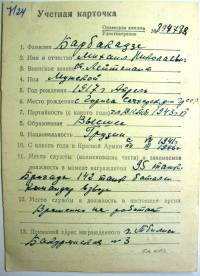 Учетная карточка
Орденская книжка
Удостоверение № 
1. Фамилия Барбакадзе
2. Имя и отчество Михаил Николаевич
3. Воинское звание Лейтенант
4. Пол Мужской
5. Год рождения 1917 г. Апрель
6. Место рождения
7. Партийность (с какого года)
8. Образование Высшее
9. Национальность Грузин
10. С какого года в Красной Армии с 1941 г.
11. Место службы (наименование части) и занимаемая
должность в момент награждения 95 танк.
Бригада 142 танк. батальон
Командир взвода
12. Место службы и должность в настоящее время
Временно не работает
13. Домашний адрес награжденного г. Тбилиси
№ 3